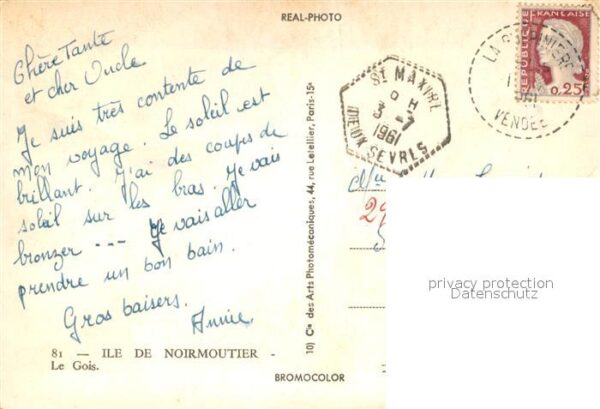 REAL-PHOTO
Chère Tante
et cher Oncle
Je suis très contente de
mon voyage. Le soleil est
brillant. J'ai des coups de
soleil sur les bras. Je vais
bronzer --- Je vais aller
prendre un bon bain.
Gros baisers.
Annie.
81 — ILE DE NOIRMOUTIER -
Le Gois.
10) Cie des Arts Photomécaniques, 44, rue Letellier, Paris-15e
BROMOCOLOR
ST MAXIRE
3 -7
1961
DEUX SEVRES
VENDÉE
REPUBLIQUE
FRANÇAISE
0,25F
privacy protection
Datenschutz